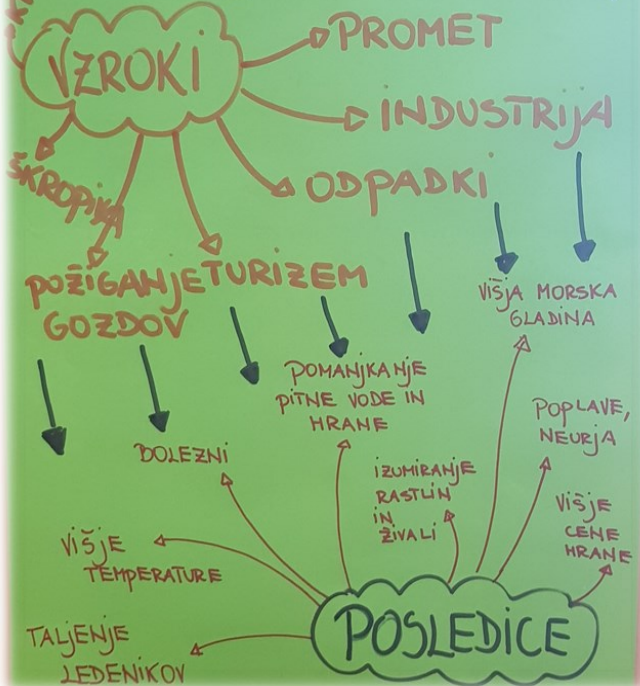 VZROKI
PROMET
INDUSTRIJA
ODPADKI
ŠKROPIVA
POŽIGANJE
GOZDOV
TURIZEM
VIŠJA MORSKA
GLADINA
POMANJKANJE
PITNE VODE IN
HRANE
POPLAVE,
NEURJA
BOLEZNI
IZUMIRANJE
RASTLIN
IN
ŽIVALI
VIŠJE
CENE
HRANE
VIŠJE
TEMPERATURE
TALJENJE
LEDENIKOV
POSLEDICE